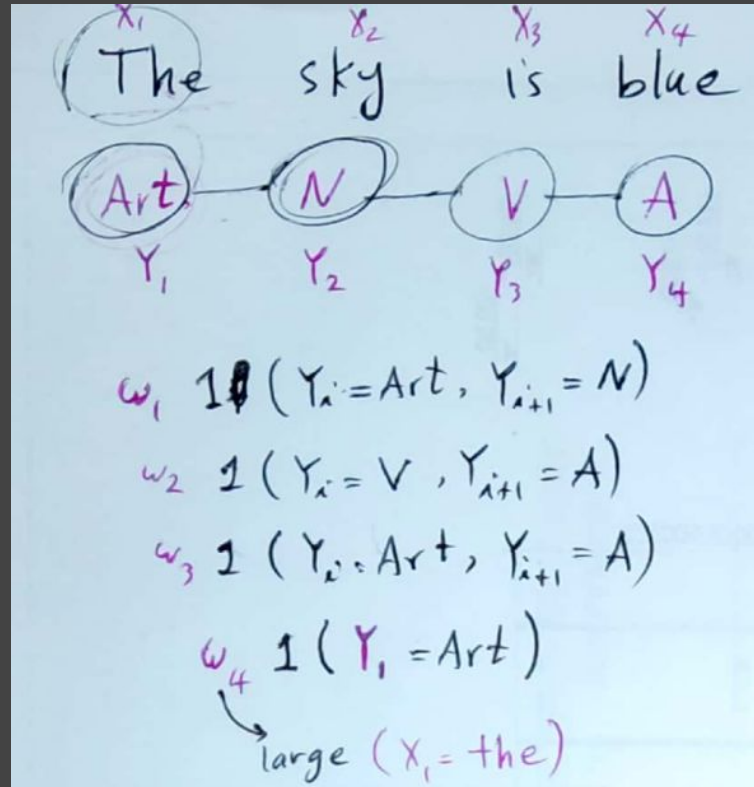 X₁ X₂ X₃ X₄
The sky is blue
Art. N V A
Y₁ Y₂ Y₃ Y₄
ω₁ 1 (Yᵢ = Art, Yᵢ₊₁ = N)
ω₂ 1 (Yᵢ = V, Yᵢ₊₁ = A)
ω₃ 1 (Yᵢ = Art, Yᵢ₊₁ = A)
ω₄ 1 (Y₁ = Art)
large (X₁ = the)